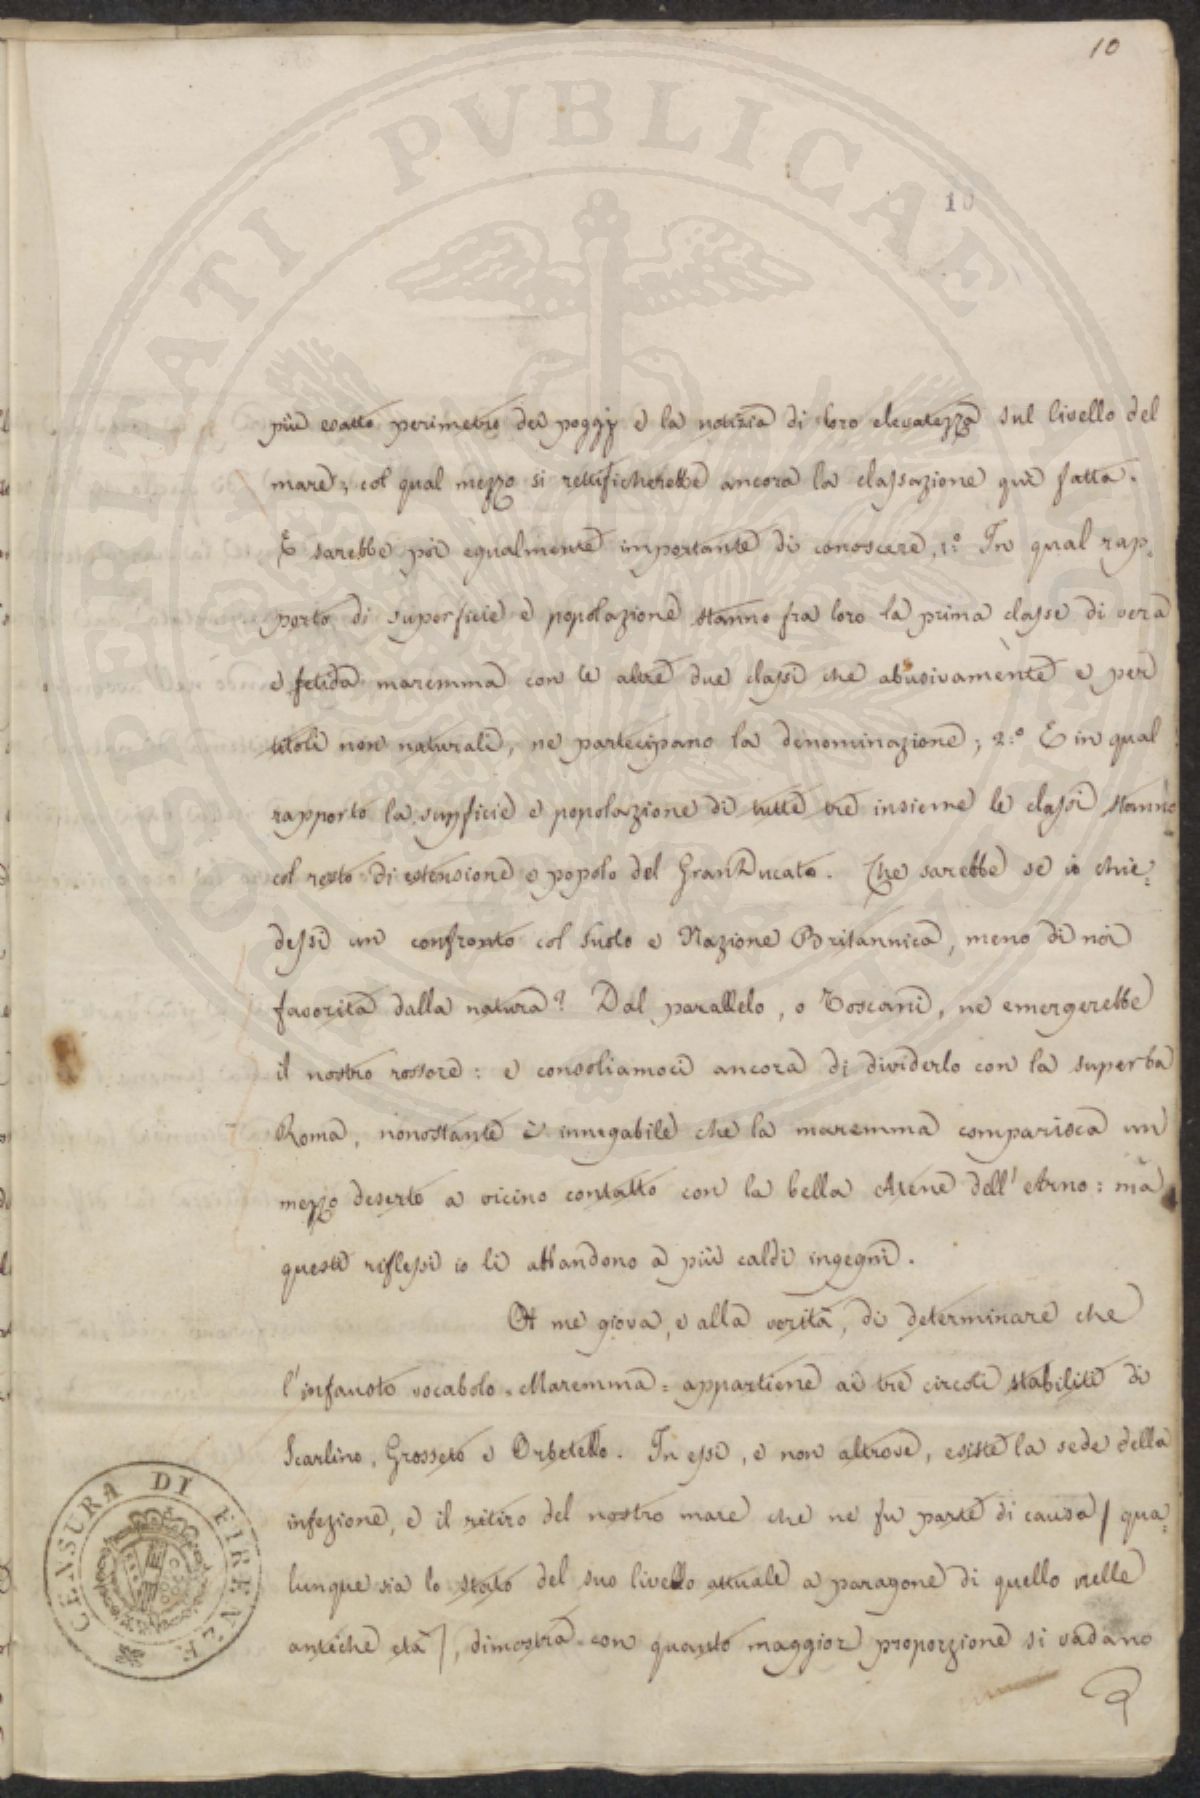 10
10
più esatto perimetro dei poggj e la notizia di loro elevatezza sul livello del
mare; col qual mezzo si rettificherebbe ancora la classazione quì fatta.
E sarebbe poi egualmente importante di conoscere, 1:º In qual rap=
porto di superficie e popolazione stanno fra loro la prima classe di vera
e fetida maremma con le altre due classi che abusivamente e per
titoli non naturali, ne partecipano la denominazione; 2:º E in qual
rapporto la supficie e popolazione di tutte tre insieme le classi stanno
col resto di estensione e popolo del GranDucato. Che sarebbe se io chie=
dessi un confronto col Suolo e Nazione Britannica, meno di noi
favorita dalla natura? Dal parallelo, o Toscani, ne emergerebbe
il nostro rossore: e consoliamoci ancora di dividerlo con la superba
Roma, nonostante è innegabile che la maremma comparisca un
mezzo deserto a vicino contatto con la bella Atene dell'Arno: ma
questi riflessi io li abbandono a più caldi ingegni.
A me giova, e alla verità, di determinare che
l'infausto vocabolo = Maremma = appartiene ai tre circoli stabiliti di
Scarlino, Grosseto e Orbetello. In essi, e non altrove, esiste la sede della
infezione, e il ritiro del nostro mare che ne fu parte di causa / qua=
lunque sia lo stato del suo livello attuale a paragone di quello nelle
antiche età /, dimostra con quanto maggior proporzione si vadano
CENSURA DI FIRENZE
PROSPERITATI PVBLICAE